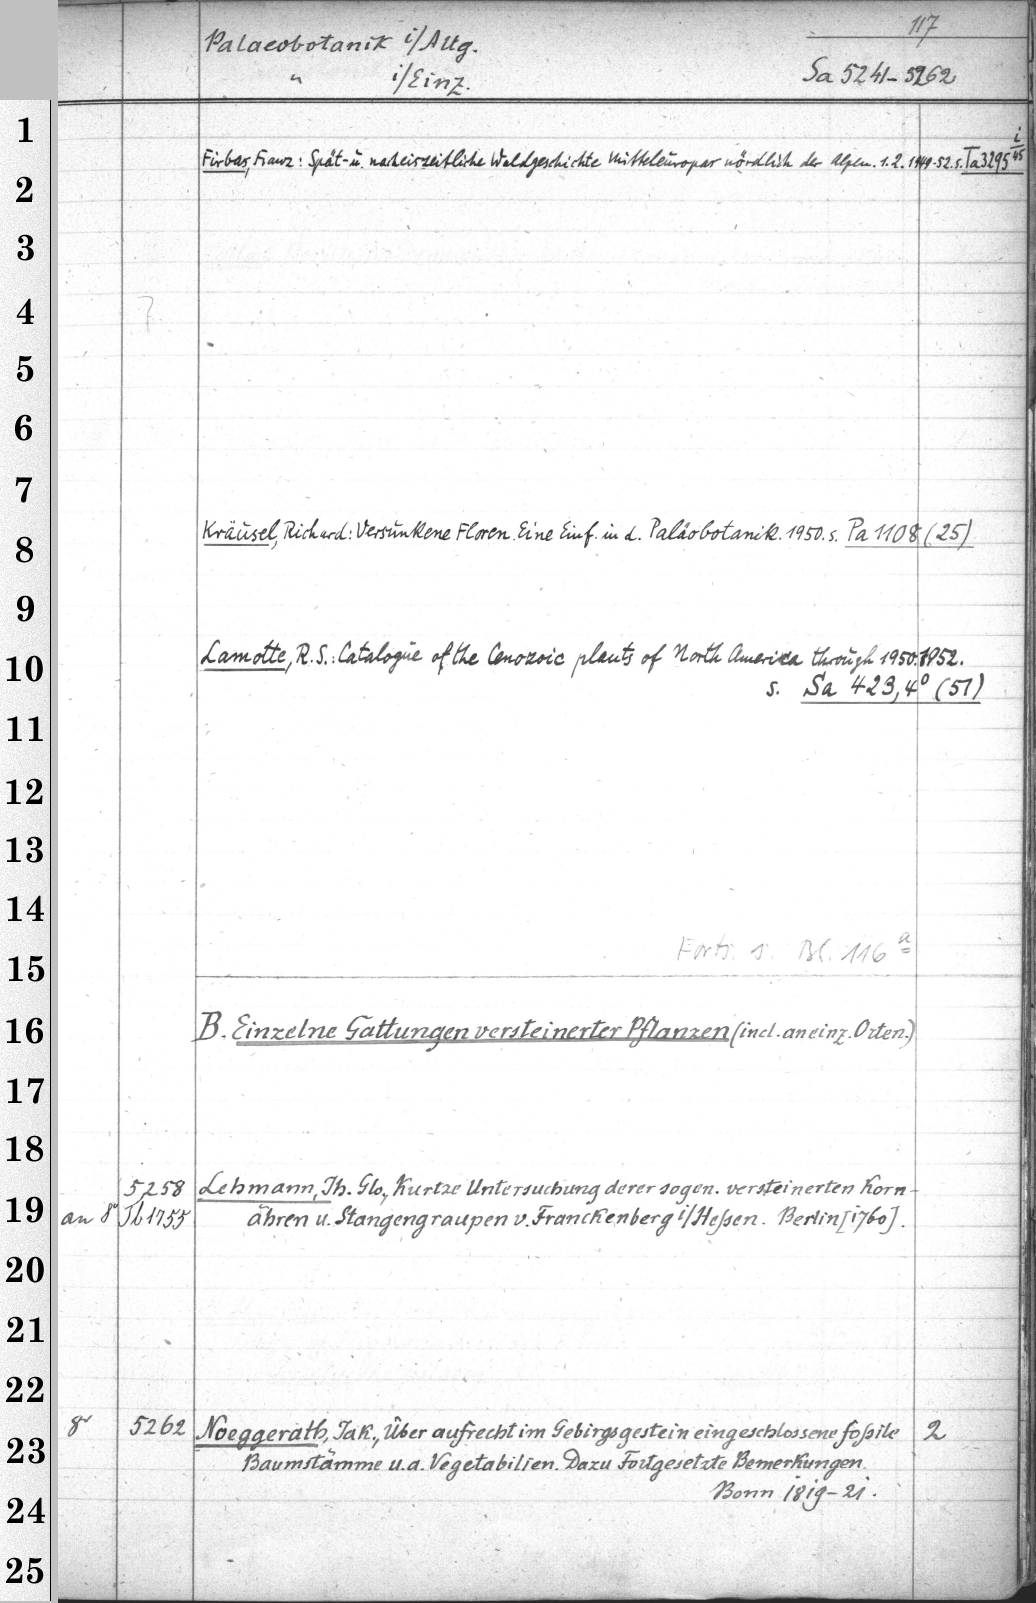 117
Palaeobotanik i/Allg.
" i/Einz.
Sa 5241-5262
1
Firbas, Franz: Spät- u. nacheiszeitliche Waldgeschichte Mitteleuropas nördlich der Alpen. 1.2. 1949-52. s. Ta 3295 i/45
2
3
4
7
5
6
7
Kräusel, Richard: Versunkene Floren. Eine Einf. in d. Paläobotanik. 1950. s. Pa 1108 (25)
8
9
Lamotte, R.S.: Catalogue of the Cenozoic plants of North America through 1950. 1952.
10
s. Sa 423, 4° (51)
11
12
13
14
Forts. s. Bl. 116 a
15
B. Einzelne Gattungen versteinerter Pflanzen (incl. an einz. Orten.)
16
17
18
5258 Lehmann, Jh. Glo., Kurtze Untersuchung derer sogen. versteinerten Korn-
19
an 8° Tb 1755 ähren u. Stangengraupen v. Franckenberg i/Hessen. Berlin [1760].
20
21
22
8° 5262 Noeggerath, Jak., Über aufrecht im Gebirgsgestein eingeschlossene foßile 2
23
Baumstämme u. a. Vegetabilien. Dazu Fortgesetzte Bemerkungen.
Bonn 1819-21.
24
25